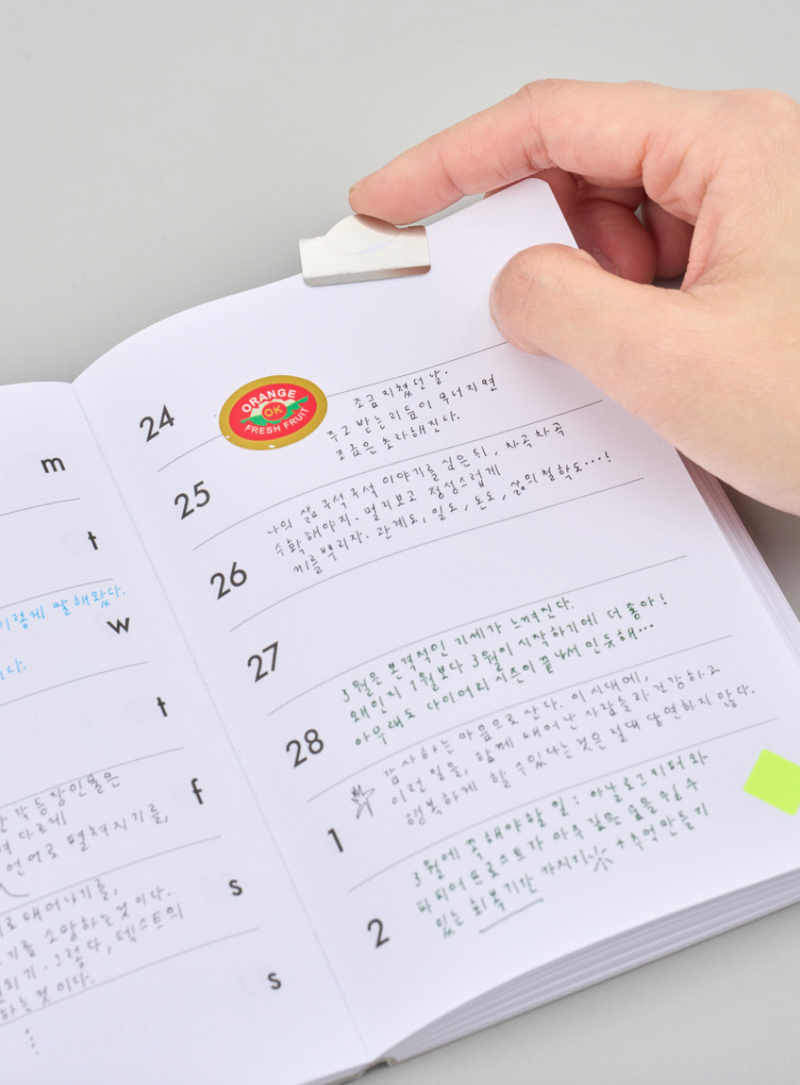 m
t
이렇게 말해왔다.
w
다.
t
각 등장인물은
다르게
언어로 펼쳐지기를,
f
로 태어나기를,
기를 소망하는 것이다.
되기. 그렇다, 텍스트의
하는 것이다.
s
s
24
ORANGE
OK
FRESH FRUIT
조금 지쳤던 날.
주고 받는 리듬이 무너지면
조금은 초라해진다.
25
나의 삶 구석구석 이야기를 심은 뒤, 차곡차곡
수확해야지. 멀리보고 정성스럽게
씨를 뿌리자. 관계도, 일도, 돈도, 삶의 철학도...!
26
27
3월은 본격적인 기세가 느껴진다.
왜인지 1월보다 3월이 시작하기에 더 좋아!
아무래도 다이어리 시즌이 끝나서 인듯해...
28
감사하는 마음으로 산다. 이 시대에,
이런 일을, 함께 태어난 사람들과 건강하고
행복하게 할 수 있다는 것은 절대 당연하지 않다.
1
3월에 꼭 해야할 일: 아날로그키퍼와
파피어프로스트가 아주 깊은 숨을 쉴 수
있는 회복기간 가지기 + 추억 만들기
2